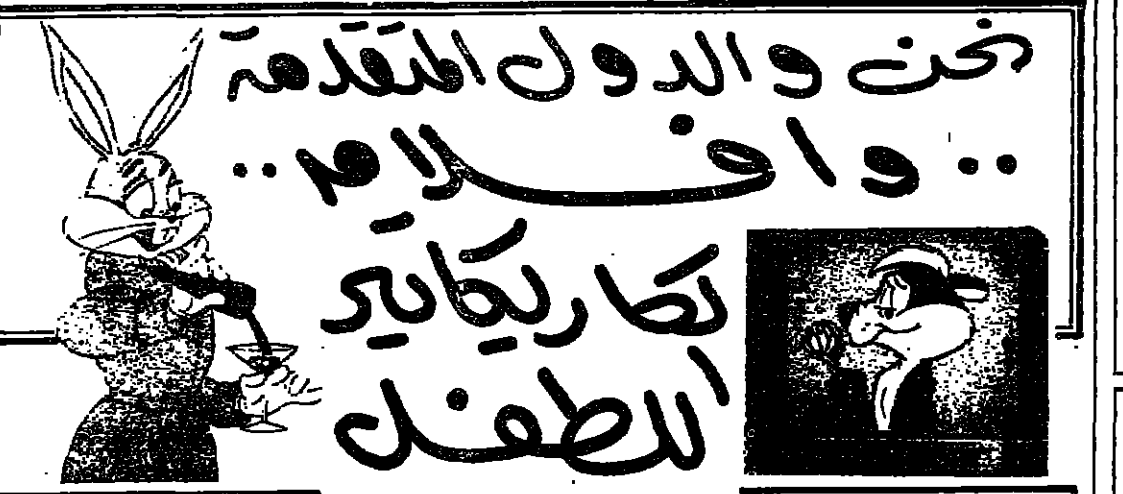 نحن والدول المتقدمة
.. وافلام ..
كاريكاتير
للطفل